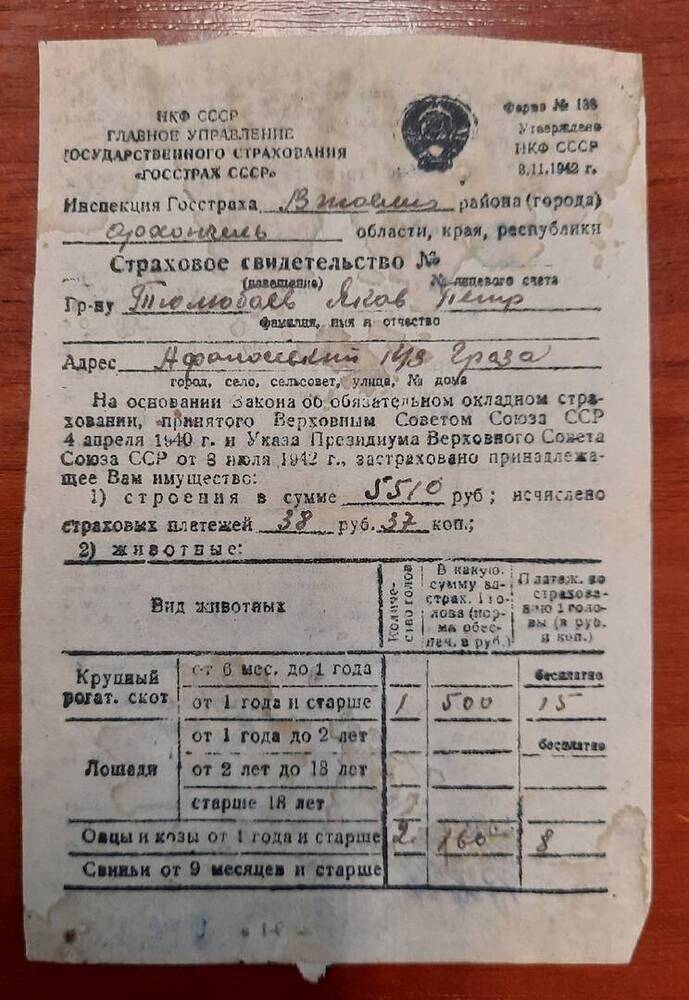 НКФ СССР
ГЛАВНОЕ УПРАВЛЕНИЕ
ГОСУДАРСТВЕННОГО СТРАХОВАНИЯ
«ГОССТРАХ СССР»
Форма № 138
Утверждено
НКФ СССР
8.11.1942 г.
Инспекция Госстраха района (города)
области, края, республики
Страховое свидетельство №
(извещение) № лицевого счета
Гр-ну Яков Петр
Фамилия, имя и отчество
Адрес
город, село, сельсовет, улица, № дома
На основании Закона об обязательном окладном стра-
ховании, принятого Верховным Советом Союза ССР
4 апреля 1940 г. и Указа Президиума Верховного Совета
Союза ССР от 8 июля 1942 г., застраховано принадлежа-
щее Вам имущество:
1) строения в сумме 5510 руб; исчислено
страховых платежей 38 руб. 37 коп.;
2) животные:
Вид животных
Количе-
ство голов
В какую
сумму за-
страх. 1 го-
лова (нор-
ма обес-
печ. в руб.)
Платеж. по
страхова-
нию 1 голо-
вы (в руб.
и коп.)
Крупный
рогат. скот
от 6 мес. до 1 года бесплатно
от 1 года и старше 1 500 15
Лошади
от 1 года до 2 лет бесплатно
от 2 лет до 18 лет
старше 18 лет
Овцы и козы от 1 года и старше 2 160 8
Свиньи от 9 месяцев и старше